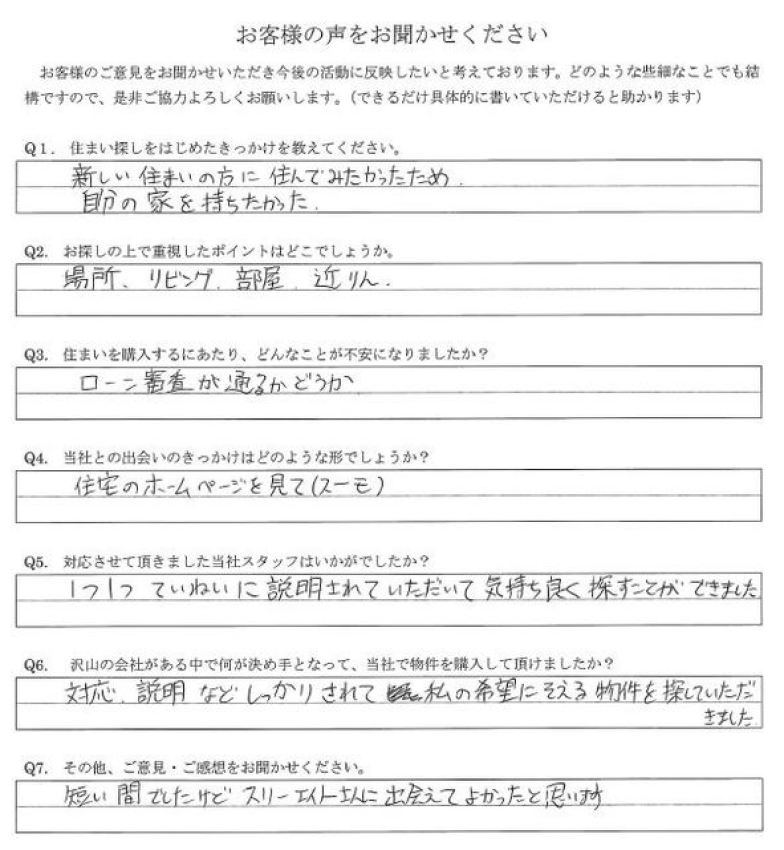 お客様の声をお聞かせください
お客様のご意見をお聞かせいただき今後の活動に反映したいと考えております。どのような些細なことでも結
構ですので、是非ご協力よろしくお願いします。（できるだけ具体的に書いていただけると助かります）
Q1. 住まい探しをはじめたきっかけを教えてください。
新しい住まいの方に住んでみたかったため.
自分の家を持ちたかった.
Q2. お探しの上で重視したポイントはどこでしょうか。
場所、リビング. 部屋. 近りん.
Q3. 住まいを購入するにあたり、どんなことが不安になりましたか？
ローン審査が通るかどうか
Q4. 当社との出会いのきっかけはどのような形でしょうか？
住宅のホームページを見て(スーモ)
Q5. 対応させて頂きました当社スタッフはいかがでしたか？
1つ1つていねいに説明されていただいて気持ち良く探すことができました
Q6. 沢山の会社がある中で何が決め手となって、当社で物件を購入して頂けましたか？
対応. 説明などしっかりされて 私の希望にそえる物件を探していただ
きました
Q7. その他、ご意見・ご感想をお聞かせください。
短い間でしたけどスリーエイトさんに出会えてよかったと思います